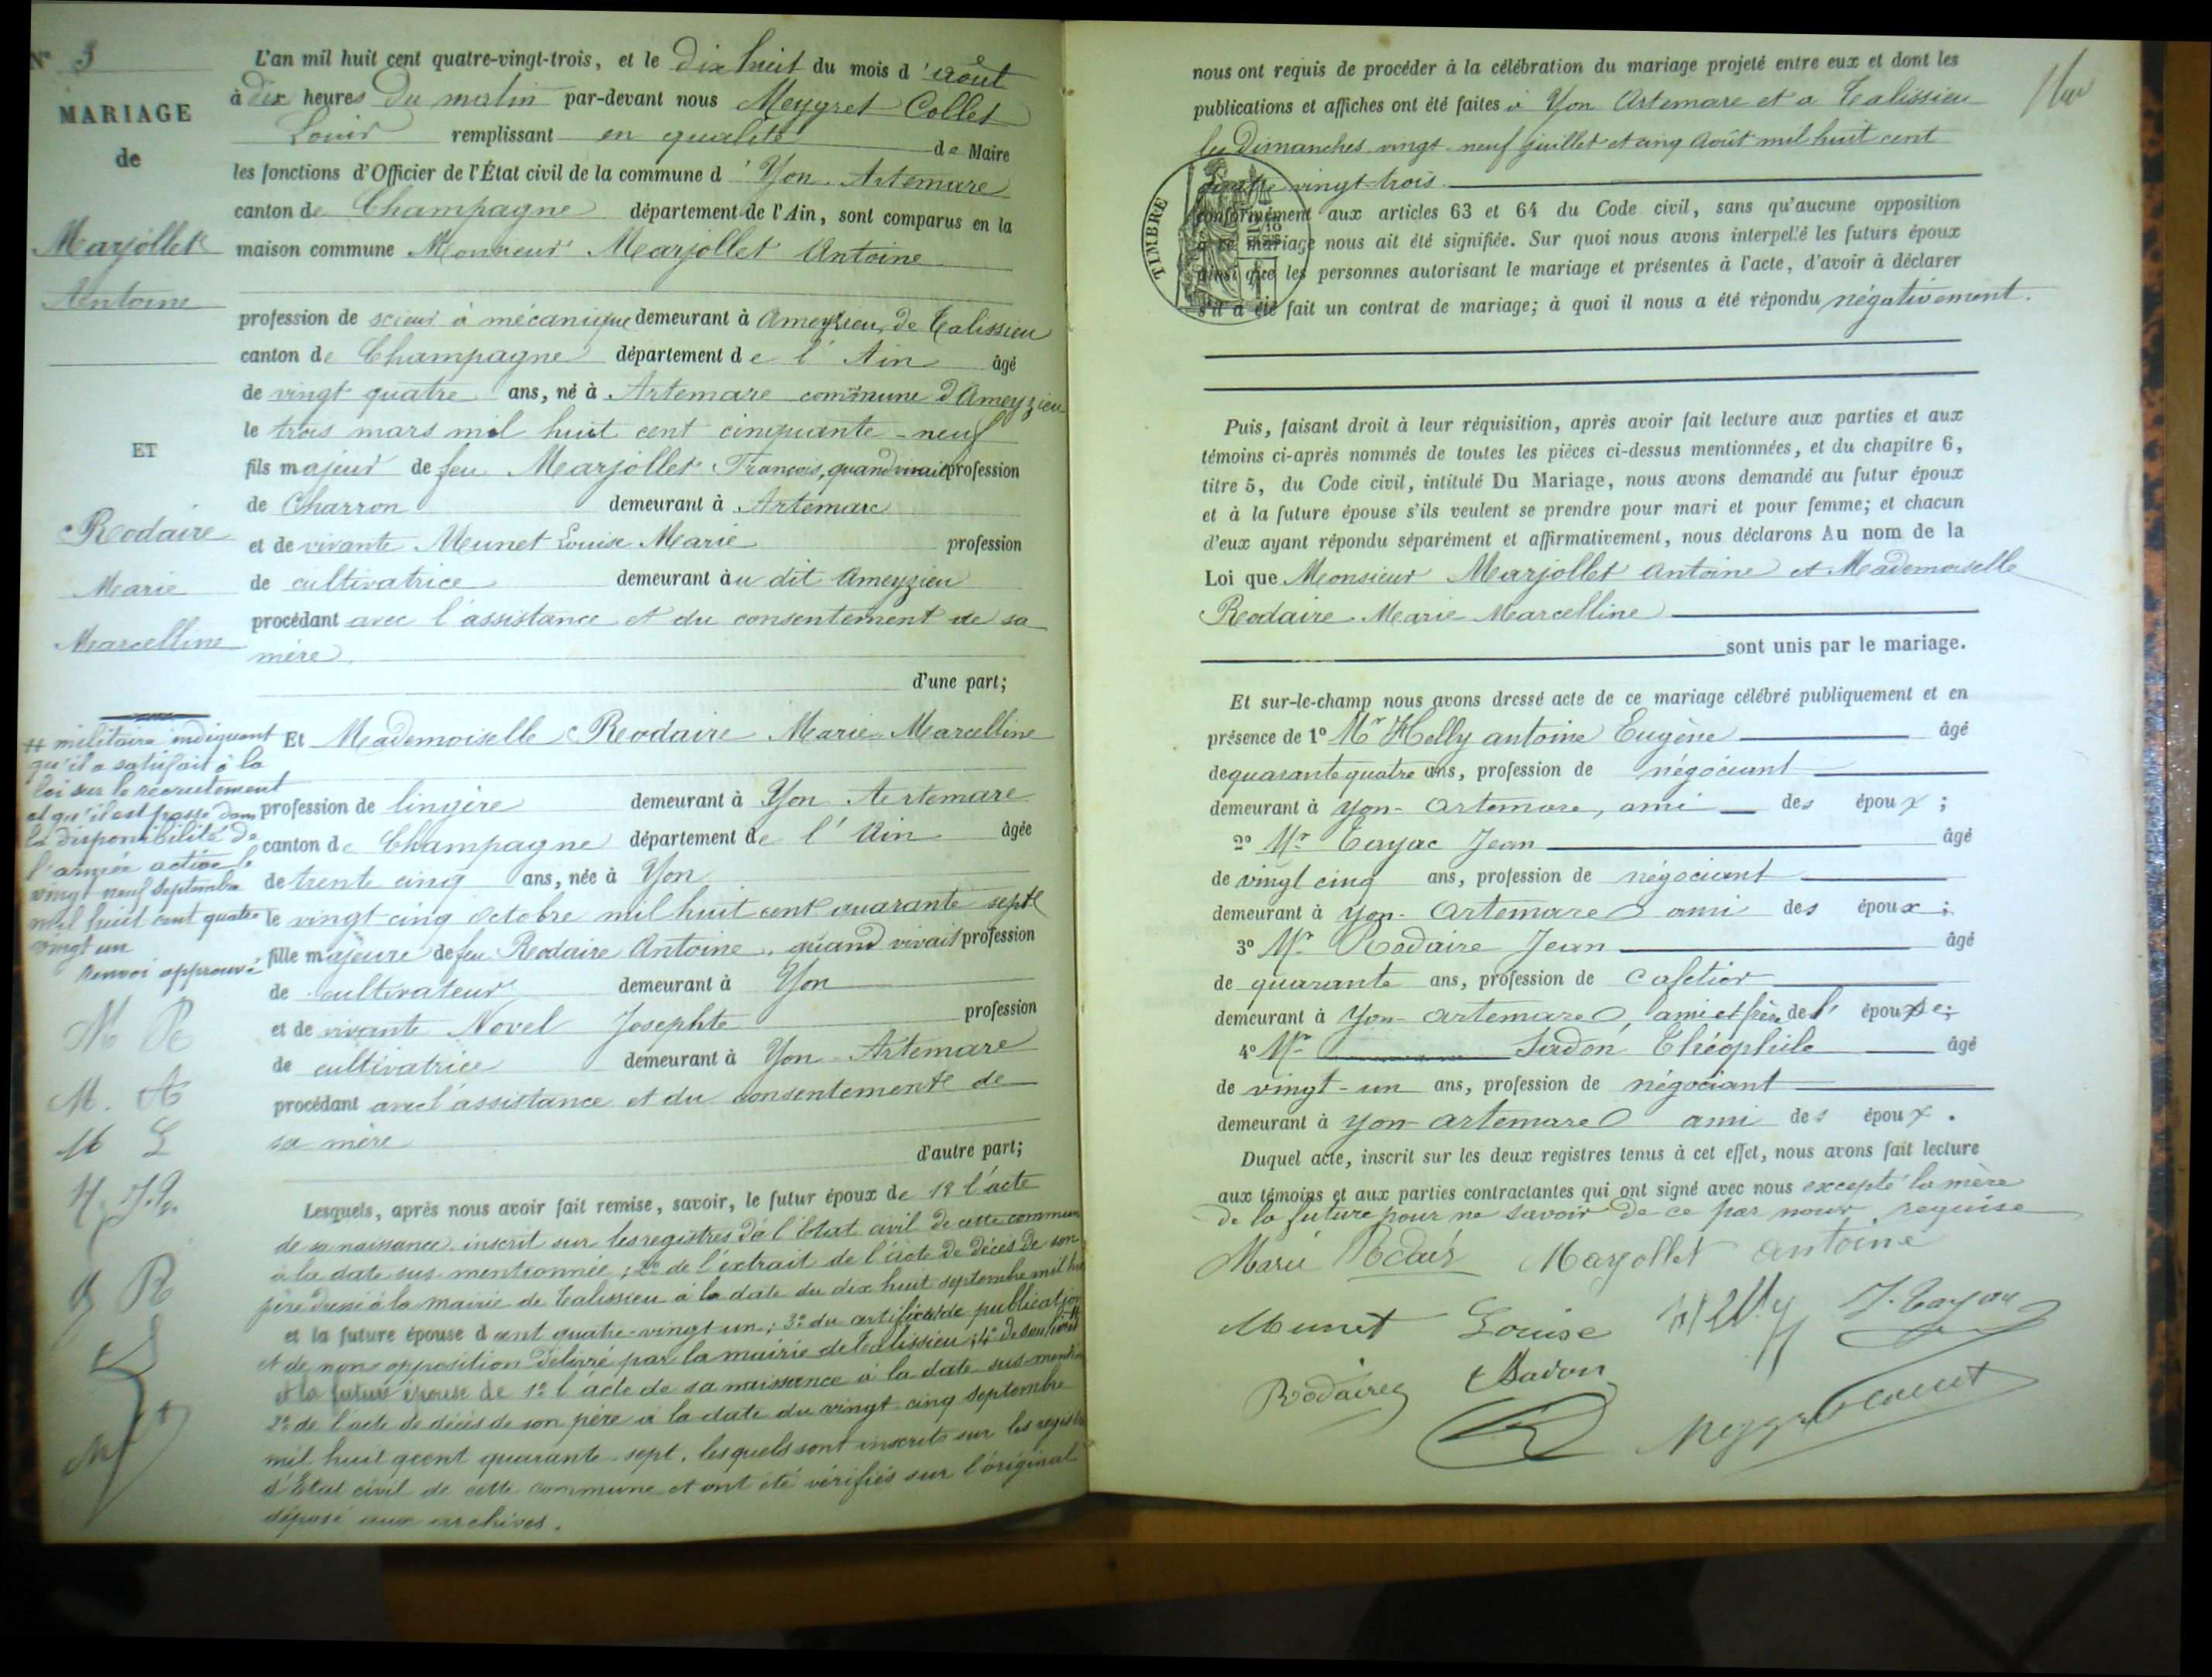 N° 3
MARIAGE
de
Marjollet
Antoine
ET
Rodaire
Marie
Marcelline
L'an mil huit cent quatre-vingt-trois, et le dix huit du mois d'août
à dix heures du matin par-devant nous Meygret Collet
Louis remplissant en qualité de Maire
les fonctions d'Officier de l'État civil de la commune d'Yon-Artemare
canton de Champagne département de l'Ain, sont comparus en la
maison commune Monsieur Marjollet Antoine
profession de scieur à mécanique demeurant à Ameyzieu, de Talissieu
canton de Champagne département de l'Ain âgé
de vingt quatre ans, né à Artemare commune d'Ameyzieu
le trois mars mil huit cent cinquante-neuf
fils majeur de feu Marjollet François, quand vivait profession
de Charron demeurant à Artemare
et de vivante Munet Louise Marie profession
de cultivatrice demeurant àu dit Ameyzieu
procédant avec l'assistance et du consentement de sa
mère
d'une part;
Et Mademoiselle Rodaire Marie Marcelline
profession de lingère demeurant à Yon Artemare
canton de Champagne département de l'Ain âgée
de trente cinq ans, née à Yon
le vingt cinq octobre mil huit cent quarante sept
fille majeure de feu Rodaire Antoine, quand vivait profession
de cultivateur demeurant à Yon
et de vivante Novel Josephte profession
de cultivatrice demeurant à Yon-Artemare
procédant avec l'assistance et du consentement de
sa mère
d'autre part;
Lesquels, après nous avoir fait remise, savoir, le futur époux de 1° l'acte
de sa naissance inscrit sur les registres de l'État civil de cette commune
à la date sus-mentionnée; 2° de l'extrait de l'acte de décès de son
père dressé à la mairie de Talissieu à la date du dix huit septembre mil huit
et la future épouse d cent quatre-vingt un; 3° du certificat de publication
et de non opposition délivré par la mairie de Talissieu; 4° de son livret #
et la future épouse de 1° l'acte de sa naissance à la date sus-mention
2° de l'acte de décès de son père à la date du vingt cinq septembre
mil huit cent quarante-sept, lesquels sont inscrits sur les registres
d'État civil de cette commune et ont été vérifiés sur l'original
déposé aux archives.
# militaire indiquant
qu'il a satisfait à la
loi sur le recrutement
et qu'il est passé dans
la disponibilité de
l'armée active le
vingt neuf septembre
mil huit cent quatre
vingt un
renvoi approuvé
M R
M. A
M L
H. J.T.
J R
nous ont requis de procéder à la célébration du mariage projeté entre eux et dont les
publications et affiches ont été faites à Yon Artemare et à Talissieu
les Dimanches vingt-neuf juillet et cinq Août mil huit cent
quatre vingt-trois.
TIMBRE
conformément aux articles 63 et 64 du Code civil, sans qu'aucune opposition
à ce mariage nous ait été signifiée. Sur quoi nous avons interpellé les futurs époux
ainsi que les personnes autorisant le mariage et présentes à l'acte, d'avoir à déclarer
s'il a été fait un contrat de mariage; à quoi il nous a été répondu négativement.
Puis, faisant droit à leur réquisition, après avoir fait lecture aux parties et aux
témoins ci-après nommés de toutes les pièces ci-dessus mentionnées, et du chapitre 6,
titre 5, du Code civil, intitulé Du Mariage, nous avons demandé au futur époux
et à la future épouse s'ils veulent se prendre pour mari et pour femme; et chacun
d'eux ayant répondu séparément et affirmativement, nous déclarons Au nom de la
Loi que Monsieur Marjollet Antoine et Mademoiselle
Rodaire Marie Marcelline
sont unis par le mariage.
Et sur-le-champ nous avons dressé acte de ce mariage célébré publiquement et en
présence de 1° Mr Helly antoine Eugène âgé
de quarante quatre ans, profession de négociant
demeurant à Yon-Artemare, ami des époux;
2° Mr Tayac Jean âgé
de vingt cinq ans, profession de négociant
demeurant à Yon-Artemare ami des époux;
3° Mr Rodaire Jean âgé
de quarante ans, profession de cafetier
demeurant à Yon-artemare, ami et frère de l'épouse;
4° Mr Sadon Théophile âgé
de vingt-un ans, profession de négociant
demeurant à Yon-artemare ami des époux.
Duquel acte, inscrit sur les deux registres tenus à cet effet, nous avons fait lecture
aux témoins et aux parties contractantes qui ont signé avec nous excepté la mère
de la future pour ne savoir de ce par nous requise
Marie Rodair Marjollet antoine
Munet Louise Helly J. Tayac
Rodaire J Sadon
Meygret Collet